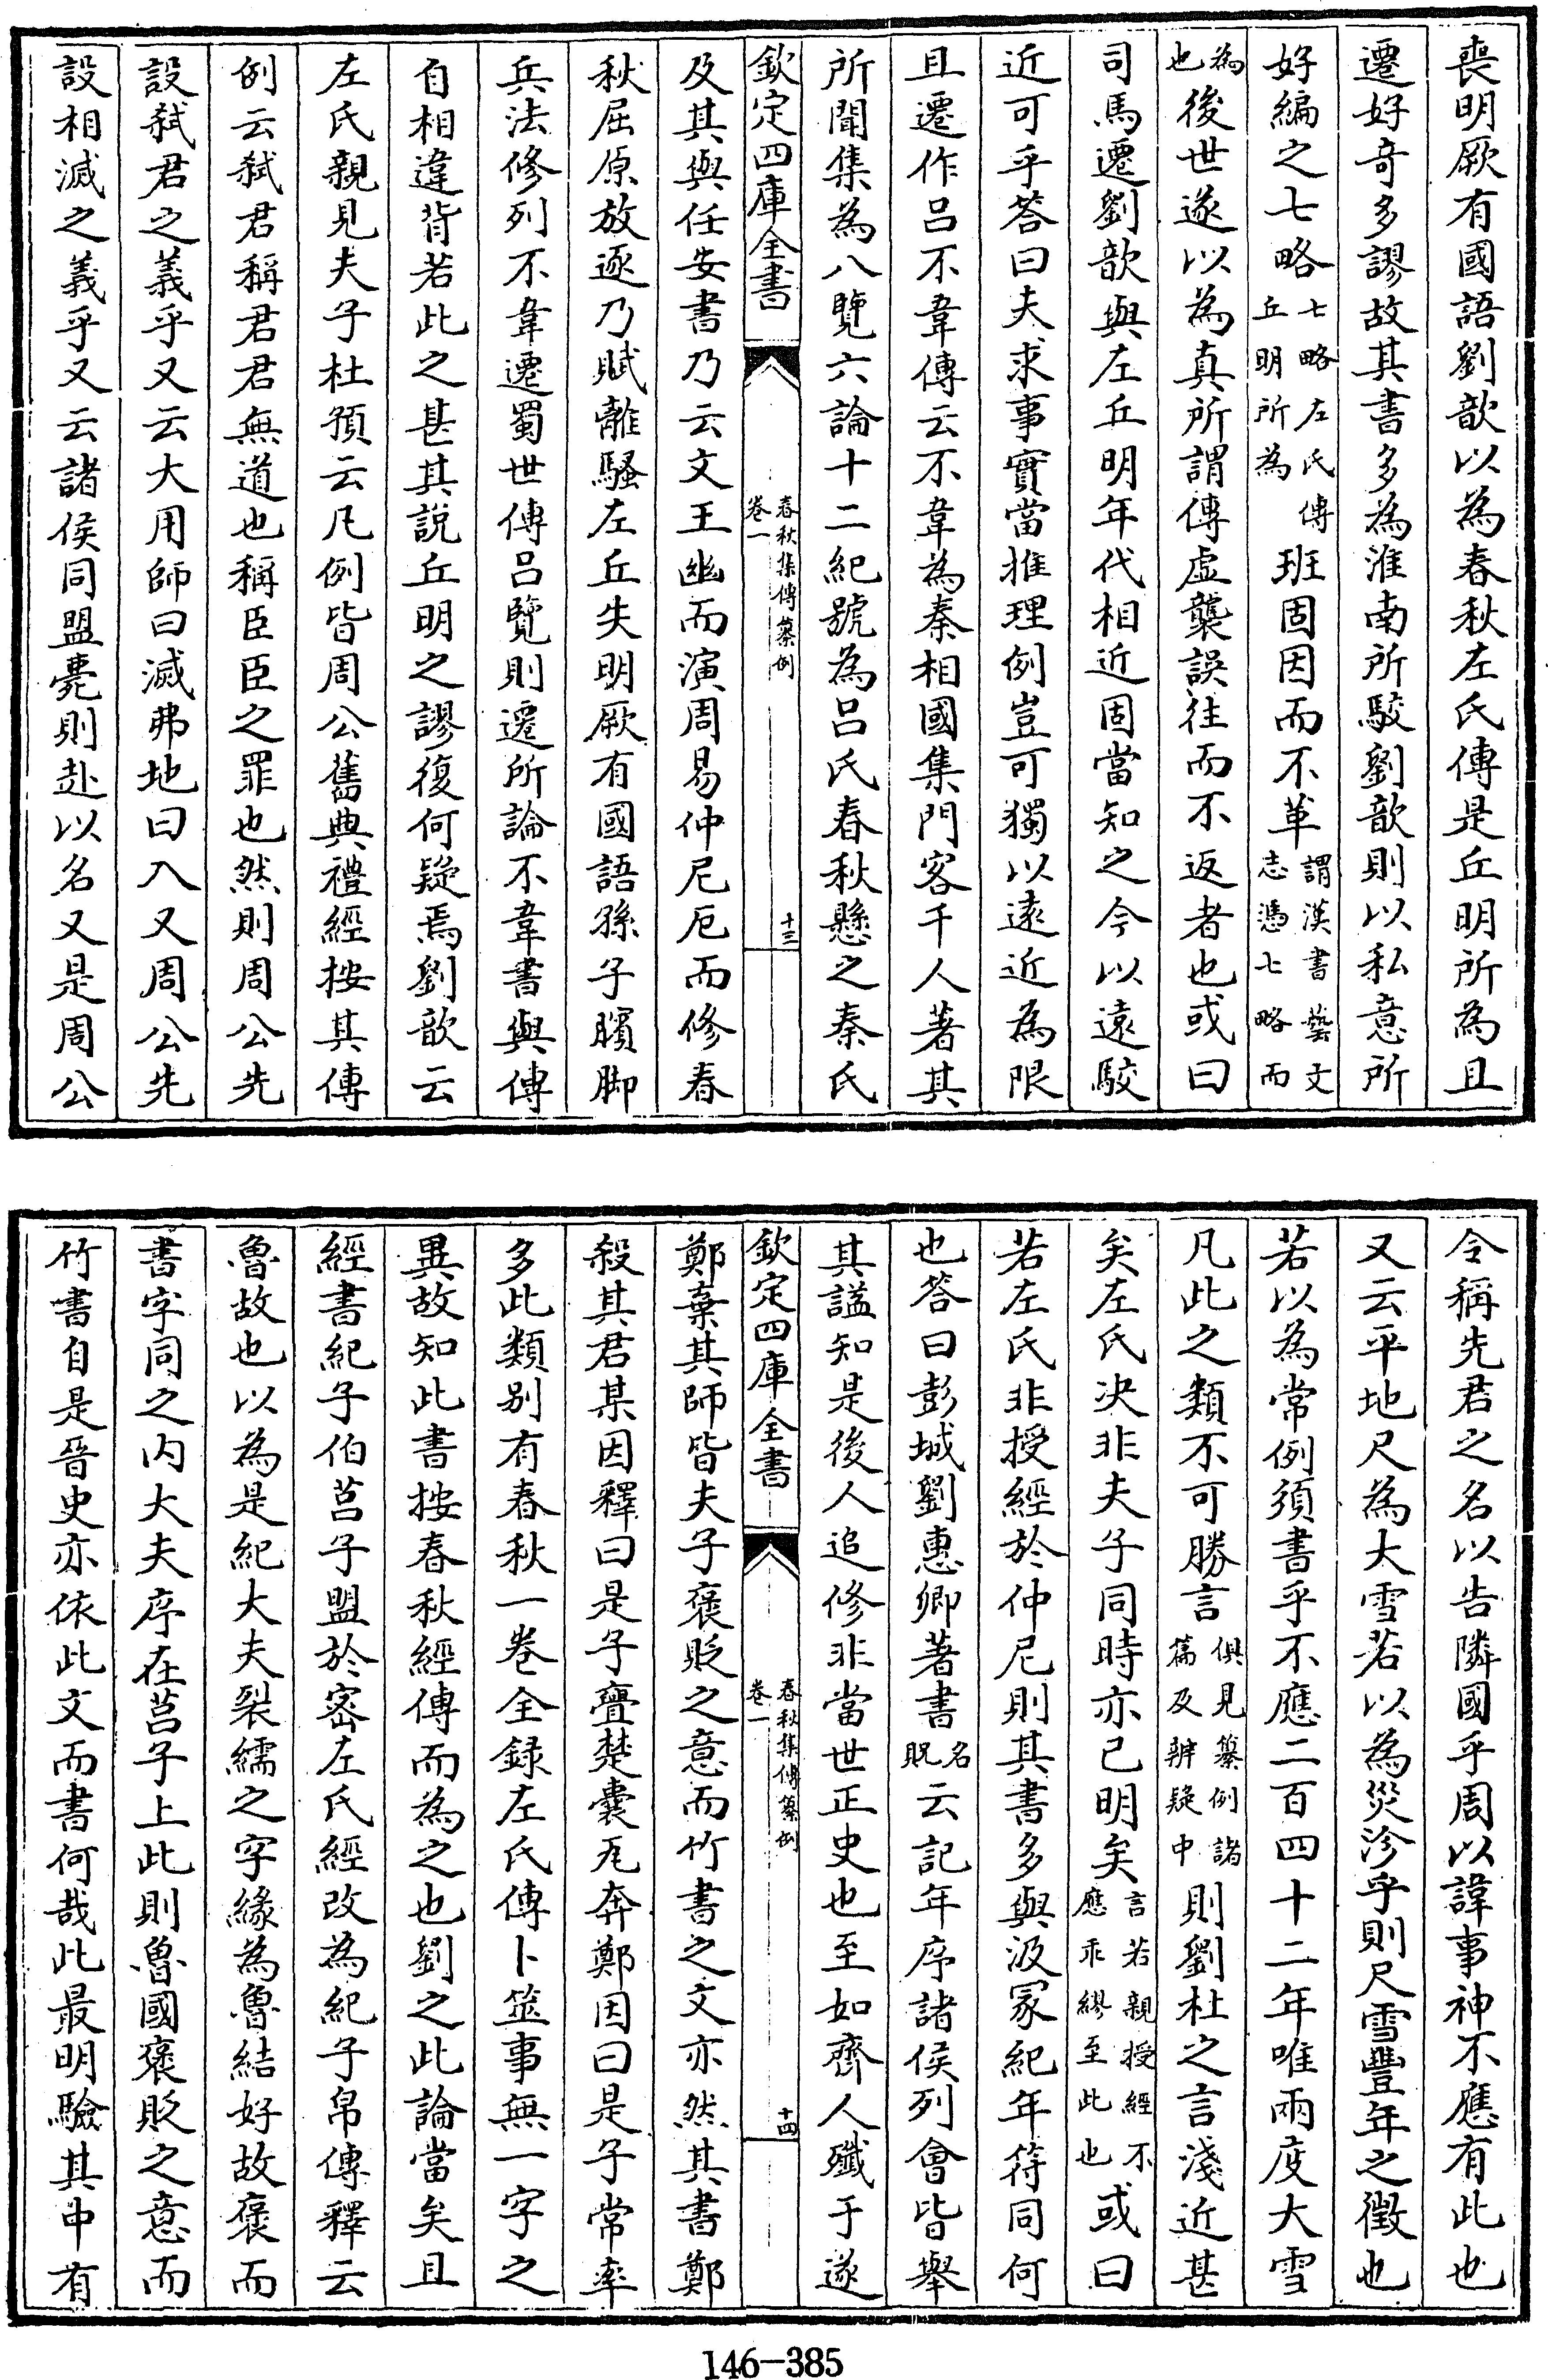 喪明厥有國語劉歆以為春秋左氏傳是丘明所為且
遷好奇多謬故其書多為淮南所駮劉歆則以私意所
好編之七略七略左氏傳丘明所為班固因而不革謂漢書藝文志憑七略而
為也後世遂以為真所謂傳虛襲誤往而不返者也或曰
司馬遷劉歆與左丘明年代相近固當知之今以遠駮
近可乎答曰夫求事實當推理例豈可獨以遠近為限
且遷作呂不韋傳云不韋為秦相國集門客千人著其
所聞集為八覽六論十二紀號為呂氏春秋懸之秦氏
欽定四庫全書
春秋集傳纂例
卷一
十三
及其與任安書乃云文王幽而演周易仲尼厄而修春
秋屈原放逐乃賦離騷左丘失明厥有國語孫子臏脚
兵法修列不韋遷蜀世傳呂覽則遷所論不韋書與傳
自相違背若此之甚其說丘明之謬復何疑焉劉歆云
左氏親見夫子杜預云凡例皆周公舊典禮經按其傳
例云弒君稱君君無道也稱臣臣之罪也然則周公先
設弒君之義乎又云大用師曰滅弗地曰入又周公先
設相滅之義乎又云諸侯同盟薨則赴以名又是周公
令稱先君之名以告隣國乎周以諱事神不應有此也
又云平地尺為大雪若以為災沴乎則尺雪豐年之徵也
若以為常例須書乎不應二百四十二年唯兩度大雪
凡此之類不可勝言俱見纂例諸篇及辨疑中則劉杜之言淺近甚
矣左氏決非夫子同時亦已明矣言若親授經不應乖繆至此也或曰
若左氏非授經於仲尼則其書多與汲冢紀年符同何
也答曰彭城劉惠卿著書名貺云記年序諸侯列會皆舉
其諡知是後人追修非當世正史也至如齊人殲于遂
欽定四庫全書
春秋集傳纂例
卷一
十四
鄭棄其師皆夫子褒貶之意而竹書之文亦然其書鄭
殺其君某因釋曰是子亹楚囊瓦奔鄭因曰是子常率
多此類別有春秋一卷全録左氏傳卜筮事無一字之
異故知此書按春秋經傳而為之也劉之此論當矣且
經書紀子伯莒子盟於密左氏經改為紀子帛傳釋云
魯故也以為是紀大夫裂繻之字緣為魯結好故褒而
書字同之内大夫序在莒子上此則魯國褒貶之意而
竹書自是晉史亦依此文而書何哉此最明驗其中有
146-385